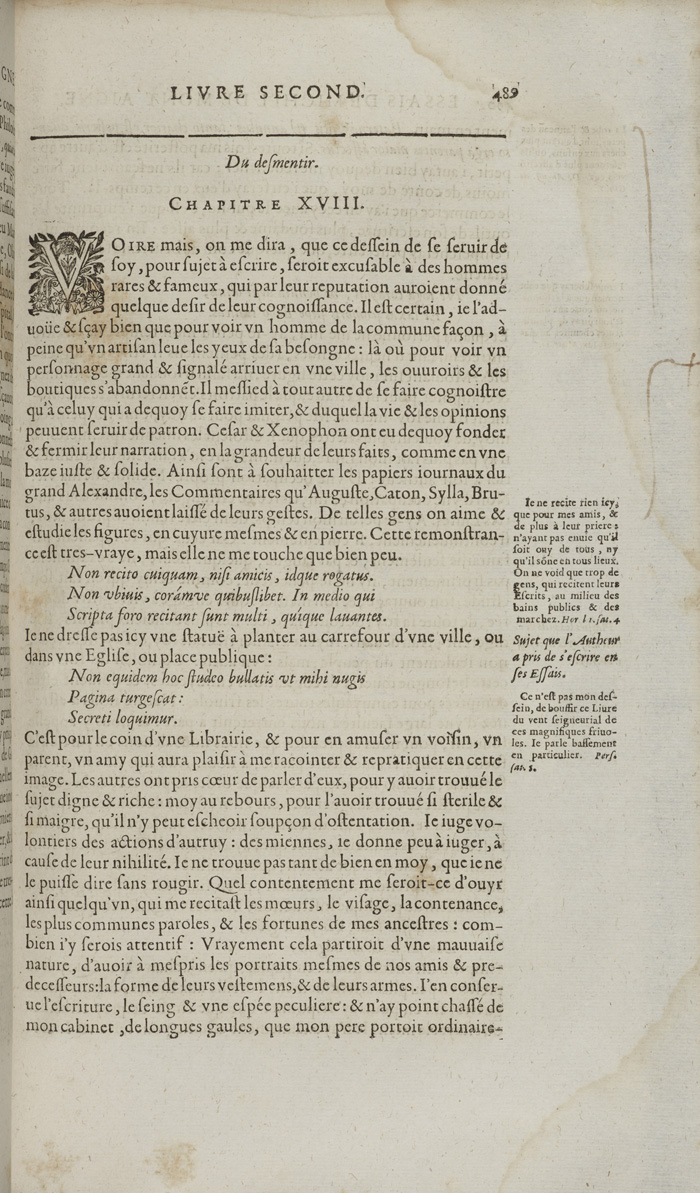 LIVRE SECOND. 489
Du deſmentir.
CHAPITRE XVIII.
VOIRE mais, on me dira, que ce deſſein de ſe ſeruir de
ſoy, pour ſujet à eſcrire, ſeroit excuſable à des hommes
rares & fameux, qui par leur reputation auroient donné
quelque deſir de leur cognoiſſance. Il eſt certain, ie l'ad-
uoüe & ſçay bien que pour voir vn homme de la commune façon, à
peine qu'vn artiſan leue les yeux de ſa beſongne: là où pour voir vn
perſonnage grand & ſignalé arriuer en vne ville, les ouuroirs & les
boutiques s'abandonnẽt. Il meſſied à tout autre de ſe faire cognoiſtre
qu'à celuy qui a dequoy ſe faire imiter, & duquel la vie & les opinions
peuuent ſeruir de patron. Ceſar & Xenophon ont eu dequoy fonder
& fermir leur narration, en la grandeur de leurs faits, comme en vne
baze iuſte & ſolide. Ainſi ſont à ſouhaitter les papiers iournaux du
grand Alexandre, les Commentaires qu'Auguſte, Caton, Sylla, Bru-
tus, & autres auoient laiſſé de leurs geſtes. De telles gens on aime &
eſtudie les figures, en cuyure meſmes & en pierre. Cette remonſtran-
ce eſt tres-vraye, mais elle ne me touche que bien peu.
Non recito cuiquam, niſi amicis, idque rogatus.
Non vbiuis, corámve quibuſlibet. In medio qui
Scripta foro recitant ſunt multi, quíque lauantes.
Ie ne dreſſe pas icy vne ſtatuë à planter au carrefour d'vne ville, ou
dans vne Egliſe, ou place publique:
Non equidem hoc ſtudeo bullatis vt mihi nugis
Pagina turgeſcat:
Secreti loquimur.
C'eſt pour le coin d'vne Librairie, & pour en amuſer vn voiſin, vn
parent, vn amy qui aura plaiſir à me racointer & repratiquer en cette
image. Les autres ont pris cœur de parler d'eux, pour y auoir trouué le
ſujet digne & riche: moy au rebours, pour l'auoir trouué ſi ſterile &
ſi maigre, qu'il n'y peut eſcheoir ſoupçon d'oſtentation. Ie iuge vo-
lontiers des actions d'autruy: des miennes, ie donne peu à iuger, à
cauſe de leur nihilité. Ie ne trouue pas tant de bien en moy, que ie ne
le puiſſe dire ſans rougir. Quel contentement me ſeroit-ce d'ouyr
ainſi quelqu'vn, qui me recitaſt les mœurs, le viſage, la contenance,
les plus communes paroles, & les fortunes de mes anceſtres: com-
bien i'y ſerois attentif: Vrayement cela partiroit d'vne mauuaiſe
nature, d'auoir à meſpris les portraits meſmes de nos amis & pre-
deceſſeurs: la forme de leurs veſtemens, & de leurs armes. I'en conſer-
ue l'eſcriture, le ſeing & vne eſpée peculiere: & n'ay point chaſſé de
mon cabinet, de longues gaules, que mon pere portoit ordinaire-
Ie ne recite rien icy,
que pour mes amis, &
de plus à leur priere:
n'ayant pas enuie qu'il
ſoit ouy de tous, ny
qu'il ſône en tous lieux.
On ne void que trop de
gens, qui recitent leurs
Eſcrits, au milieu des
bains publics & des
marchez. Hor l 1. ſat. 4
Sujet que l'Autheur
a pris de s'eſcrire en
ſes Eſſais.
Ce n'eſt pas mon deſ-
ſein, de bouffir ce Liure
du vent ſeigneurial de
ces magnifiques friuo-
les. Ie parle baſſement
en particulier. Perſ.
ſat. 5.